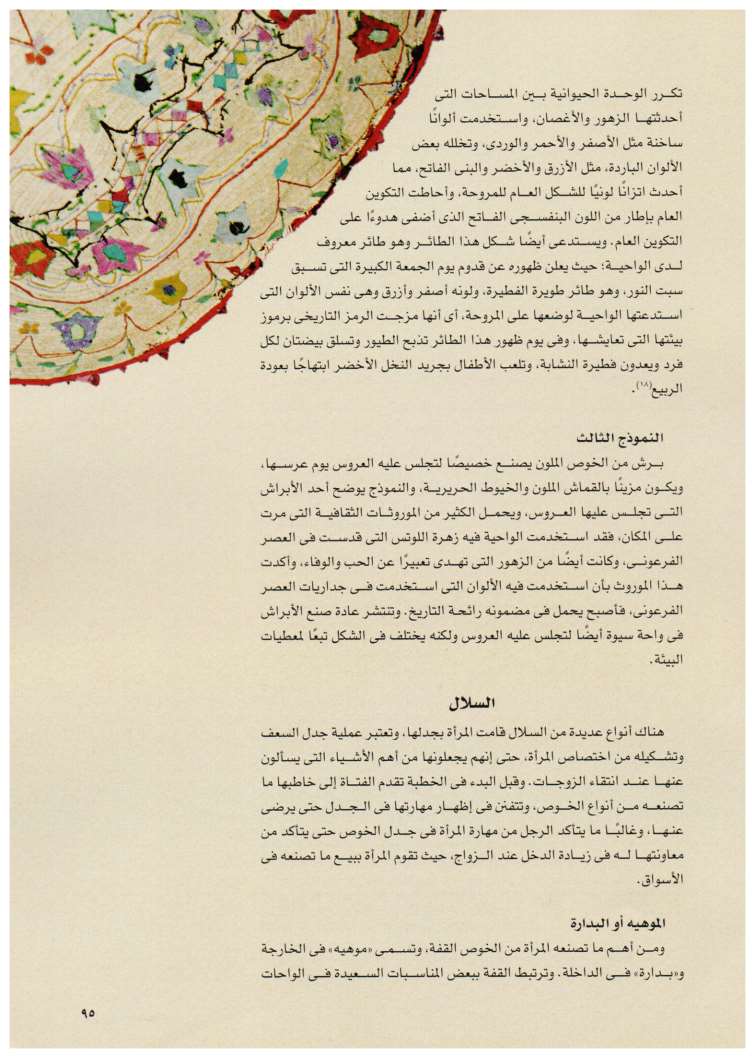 تكرر الوحدة الحيوانية بين المساحات التى
أحدثتها الزهور والأغصان، واستخدمت ألوانًا
ساخنة مثل الأصفر والأحمر والوردى، وتخلله بعض
الألوان الباردة، مثل الأزرق والأخضر والبنى الفاتح، مما
أحدث اتزانًا لونيًا للشكل العام للمروحة، وأحاطت التكوين
العام بإطار من اللون البنفسجى الفاتح الذى أضفى هدوءًا على
التكوين العام. ويستدعى أيضًا شكل هذا الطائر وهو طائر معروف
لدى الواحية؛ حيث يعلن ظهوره عن قدوم يوم الجمعة الكبيرة التى تسبق
سبت النور، وهو طائر طويرة الفطيرة، ولونه أصفر وأزرق وهى نفس الألوان التى
استدعتها الواحية لوضعها على المروحة، أى أنها مزجت الرمز التاريخى برموز
بيئتها التى تعايشها، وفى يوم ظهور هذا الطائر تذبح الطيور وتسلق بيضتان لكل
فرد ويعدون فطيرة النشابة، وتلعب الأطفال بجريد النخل الأخضر ابتهاجًا بعودة
الربيع(١٨).
النموذج الثالث
برش من الخوص الملون يصنع خصيصًا لتجلس عليه العروس يوم عرسها،
ويكون مزينًا بالقماش الملون والخيوط الحريرية، والنموذج يوضح أحد الأبراش
التى تجلس عليها العروس، ويحمل الكثير من الموروثات الثقافية التى مرت
على المكان، فقد استخدمت الواحية فيه زهرة اللوتس التى قدست فى العصر
الفرعونى، وكانت أيضًا من الزهور التى تهدى تعبيرًا عن الحب والوفاء، وأكدت
هذا الموروث بأن استخدمت فيه الألوان التى استخدمت فى جداريات العصر
الفرعونى، فأصبح يحمل فى مضمونه رائحة التاريخ. وتنتشر عادة صنع الأبراش
فى واحة سيوة أيضًا لتجلس عليه العروس ولكنه يختلف فى الشكل تبعًا لمعطيات
البيئة.
السلال
هناك أنواع عديدة من السلال قامت المرأة بجدلها، وتعتبر عملية جدل السعف
وتشكيله من اختصاص المرأة، حتى إنهم يجعلونها من أهم الأشياء التى يسألون
عنها عند انتقاء الزوجات. وقبل البدء فى الخطبة تقدم الفتاة إلى خاطبها ما
تصنعه من أنواع الخوص، وتتفنن فى إظهار مهارتها فى الجدل حتى يرضى
عنها، وغالبًا ما يتأكد الرجل من مهارة المرأة فى جدل الخوص حتى يتأكد من
معاونتها له فى زيادة الدخل عند الزواج، حيث تقوم المرأة ببيع ما تصنعه فى
الأسواق.
الموهيه أو البدارة
ومن أهم ما تصنعه المرأة من الخوص القفة، وتسمى «موهيه» فى الخارجة
و«بدارة» فى الداخلة. وترتبط القفة ببعض المناسبات السعيدة فى الواحات
٩٥